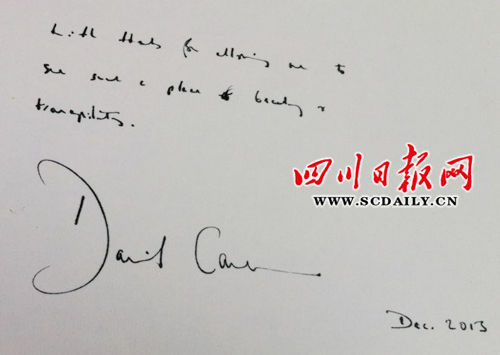 With thanks for allowing me to
see such a place of beauty &
tranquility.
四川日报网
WWW.SCDAILY.CN
David Cam
Dec. 2013